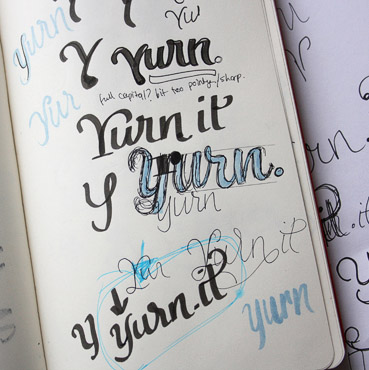 yurn
Yu
Y Yurn.
full capital? bit too pointy/sharp.
Yur
Yurn it
Y Yurn.
yurn
Yurn it
Y Yurn.it
yurn